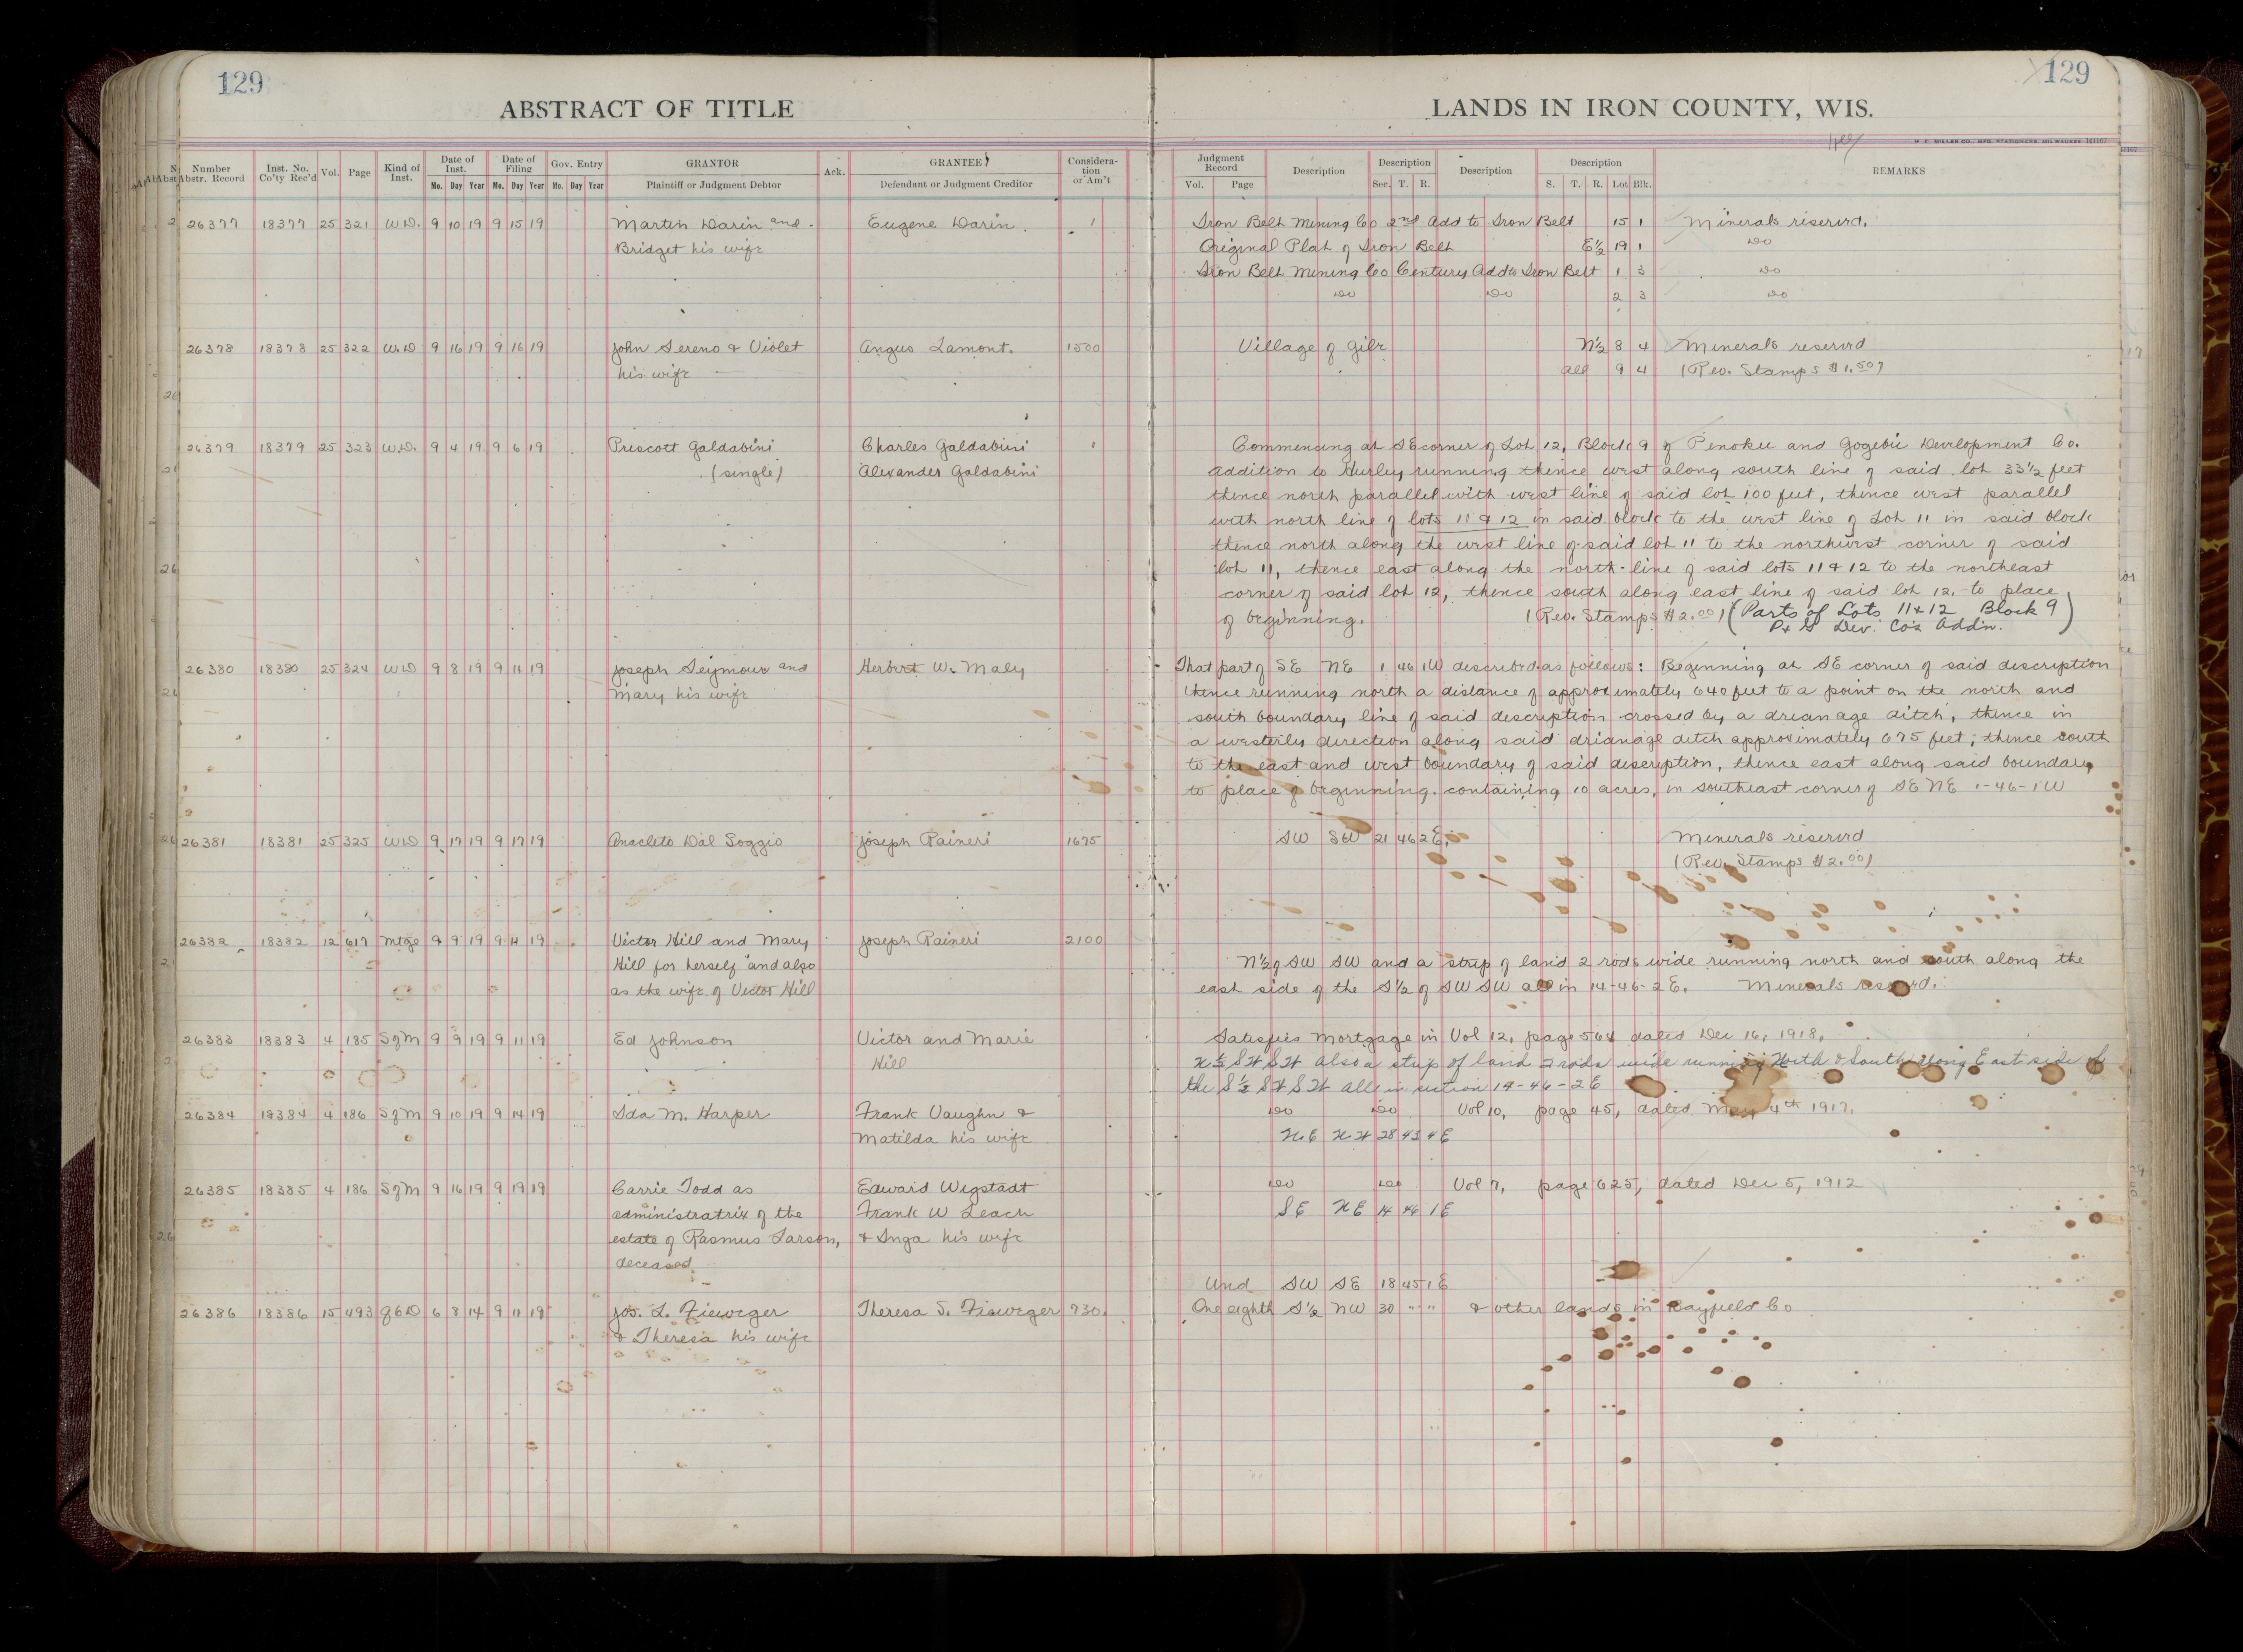 129
ABSTRACT OF TITLE
Number Abstr. Record
Inst. No. Co'ty Rec'd
Vol.
Page
Kind of Inst.
Date of Inst.
Mo. Day Year
Date of Filing
Mo. Day Year
Gov. Entry
Mo. Day Year
GRANTOR
Plaintiff or Judgment Debtor
Ack.
GRANTEE
Defendant or Judgment Creditor
Considera-
tion
or Am't
26377 18377 25 321 W.D. 9 10 19 9 15 19 Martin Darin and Eugene Darin. 1
Bridget his wife
26378 18378 25 322 W.D 9 16 19 9 16 19 John Sereno & Violet Angus Lamont. 1500
his wife
26379 18379 25 323 W.D. 9 4 19 9 6 19 Prescott Galdabini Charles Galdabini 1
(single) Alexander Galdabini
26380 18380 25 324 WD 9 8 19 9 11 19 Joseph Seymour and Herbert W. Maly
Mary his wife
26381 18381 25 325 WD 9 17 19 9 17 19 Anacleto Dal Soggio Joseph Raineri 1675
26382 18382 12 617 Mtge 9 9 19 9 11 19 Victor Hill and Mary Joseph Raineri 2100
Hill for herself and also
as the wife of Victor Hill
26383 18383 4 185 SofM 9 9 19 9 11 19 Ed Johnson Victor and Marie
Hill
26384 18384 4 186 SofM 9 10 19 9 14 19 Ida M. Harper Frank Vaughn &
Matilda his wife
26385 18385 4 186 SofM 9 16 19 9 19 19 Carrie Todd as Edward Wigstadt
administratrix of the Frank W Leach
estate of Rasmus Larson, & Inga his wife
deceased.
26386 18386 15 493 QCD 6 8 14 9 11 19 Jos. L. Fieweger Theresa S. Fieweger 730.
& Theresa his wife
129
LANDS IN IRON COUNTY, WIS.
H. E. MILLER CO., MFG. STATIONERS, MILWAUKEE
Judgment Record
Vol. Page
Description
Description
Sec. T. R.
Description
Description
S. T. R. Lot Blk.
REMARKS
Iron Belt Mining Co 2nd Add to Iron Belt 15 1 Minerals reservd.
Original Plat of Iron Belt E½ 19 1 Do
Iron Belt Mining Co Century Add to Iron Belt 1 3 Do
Do Do 2 3 Do
Village of Gile N½ 8 4 Minerals reservd
all 9 4 (Rev. Stamps $1.50)
Commencing at SE corner of Lot 12, Block 9 of Penokee and Gogebic Development Co.
addition to Hurley, running thence west along south line of said lot 33½ feet
thence north parallel with west line of said lot 100 feet, thence west parallel
with north line of lots 11 & 12 in said block to the west line of Lot 11 in said block
thence north along the west line of said lot 11 to the northwest corner of said
lot 11, thence east along the north line of said lots 11 & 12 to the northeast
corner of said lot 12, thence south along east line of said lot 12. to place
of beginning. (Rev. Stamps $2.00) (Parts of Lots 11 & 12 Block 9
P & G Dev. Co's Addn.)
That part of SE NE 1 46 1W described as follows: Beginning at SE corner of said description
thence running north a distance of approximately 640 feet to a point on the north and
south boundary line of said description crossed by a dreanage ditch, thence in
a westerly direction along said drianage ditch approximately 675 feet, thence south
to the east and west boundary of said description, thence east along said boundary
to place of beginning. containing 10 acres, in southeast corner of SE NE 1-46-1W
SW SW 21 46 2E. Minerals reservd
(Rev. Stamps $2.00)
N½ of SW SW and a strip of land 2 rods wide running north and south along the
east side of the S½ of SW SW all in 14-46-2E. Minerals reservd.
Satisfies Mortgage in Vol 12, page 564 dated Dec 16, 1918.
N½ SW SW also a strip of land 2 rods wide running North & South along East side of
the S½ SW SW all in section 14-46-2E
Do Do Vol 10, page 45, dated May 4th 1917.
N.E NW 28 43 4E
Do Do Vol 7, page 625, dated Dec 5, 1912
SE NE 14 46 1E
Und SW SE 18 45 1E
One eighth S½ NW 30 " " & other lands in Bayfield Co